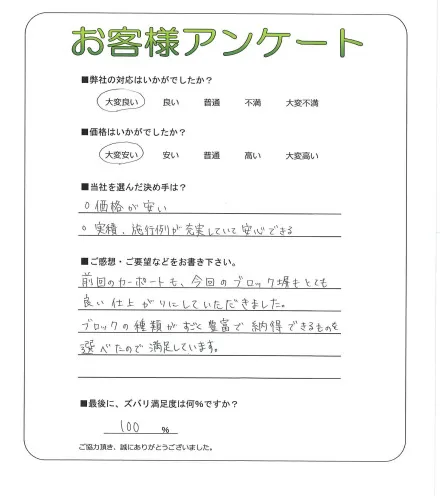 お客様アンケート
■弊社の対応はいかがでしたか？
大変良い 良い 普通 不満 大変不満
■価格はいかがでしたか？
大変安い 安い 普通 高い 大変高い
■当社を選んだ決め手は？
○ 価格が安い
○ 実積、施行例が充実していて安心できる
■ご感想・ご要望などをお書き下さい。
前回のカーポートも、今回のブロック塀もとても
良い仕上がりにしていただきました。
ブロックの種類がすごく豊富で納得できるものを
選べたので満足しています。
■最後に、ズバリ満足度は何%ですか？
100 %
ご協力頂き、誠にありがとうございました。